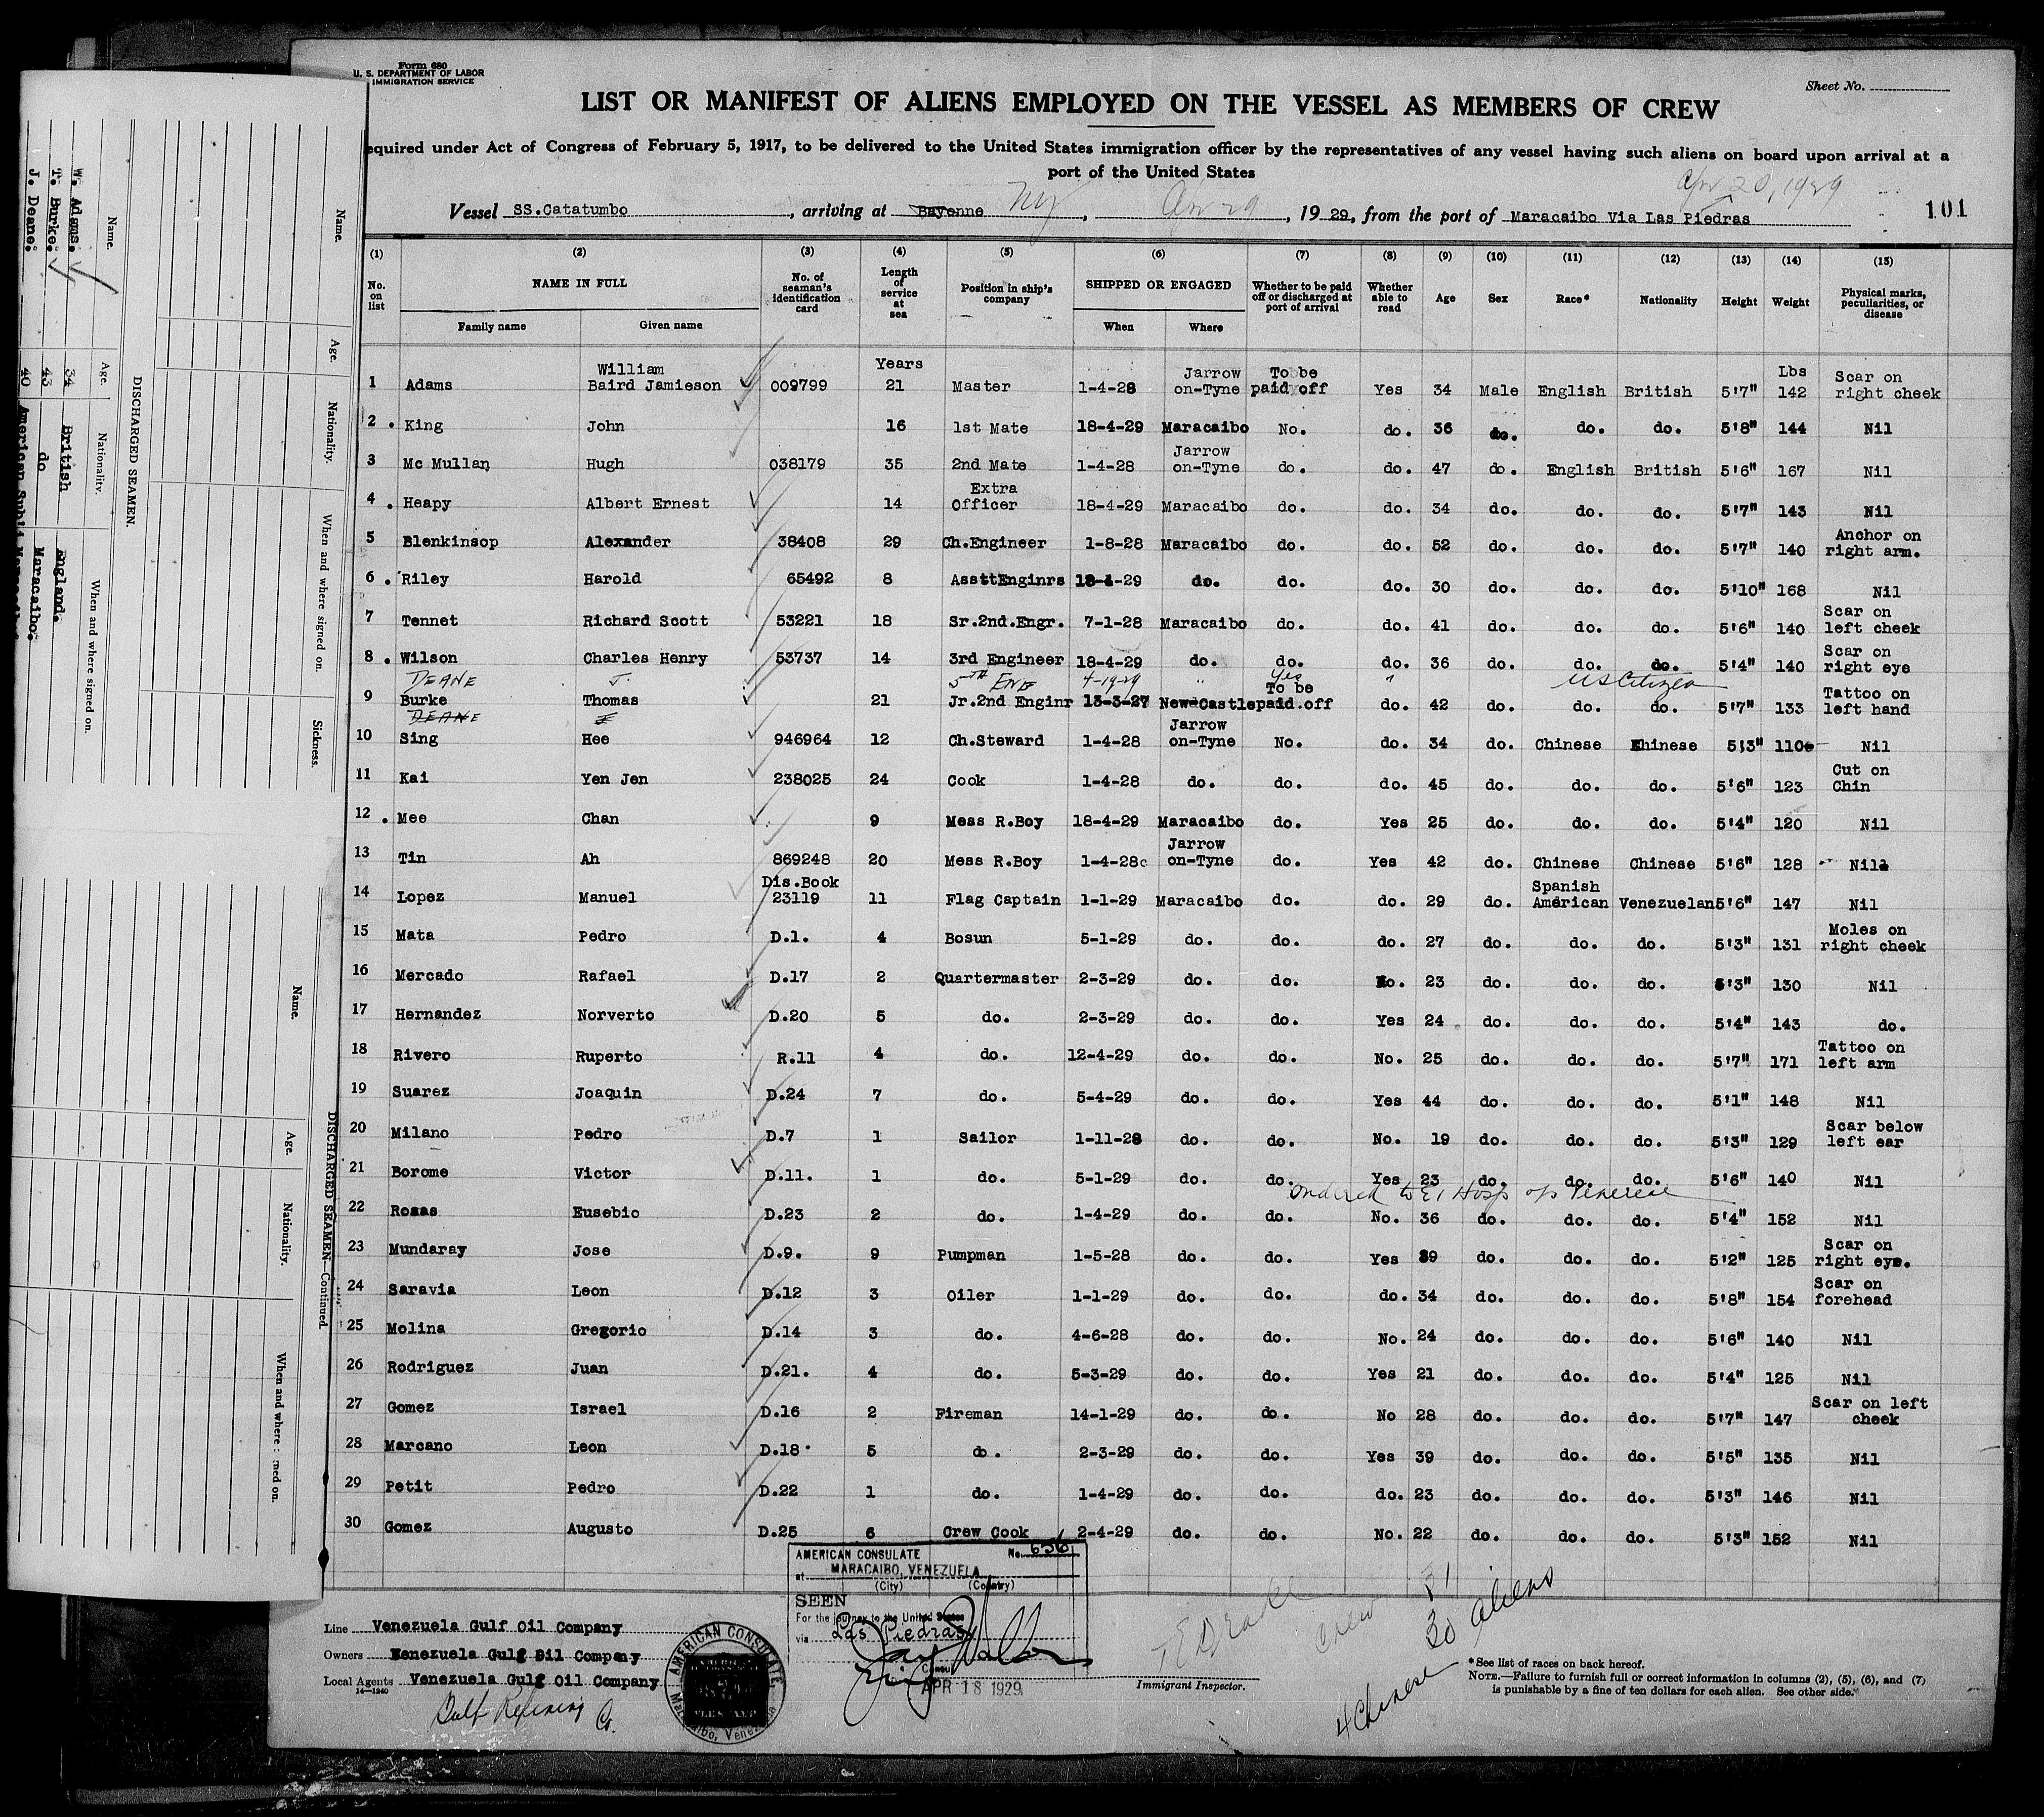 Form 680
U. S. DEPARTMENT OF LABOR
IMMIGRATION SERVICE
Sheet No.
LIST OR MANIFEST OF ALIENS EMPLOYED ON THE VESSEL AS MEMBERS OF CREW
equired under Act of Congress of February 5, 1917, to be delivered to the United States immigration officer by the representatives of any vessel having such aliens on board upon arrival at a
port of the United States
Apr 20, 1929
Vessel SS.Catatumbo, arriving at Bayonne NY, Apr 29, 19 29, from the port of Maracaibo Via Las Piedras 101
(1) (2) (3) (4) (5) (6) (7) (8) (9) (10) (11) (12) (13) (14) (15)
No. on list NAME IN FULL No. of seaman's identification card Length of service at sea Position in ship's company SHIPPED OR ENGAGED Whether to be paid off or discharged at port of arrival Whether able to read Age Sex Race* Nationality Height Weight Physical marks, peculiarities, or disease
Family name Given name When Where
William Years Jarrow To be Lbs Scar on
1 Adams Baird Jamieson 009799 21 Master 1-4-28 on-Tyne paid off Yes 34 Male English British 5'7" 142 right cheek
2 . King John 16 1st Mate 18-4-29 Maracaibo No. do. 36 do. do. do. 5'8" 144 Nil
Jarrow
3 Mc Mullan Hugh 038179 35 2nd Mate 1-4-28 on-Tyne do. do. 47 do. English British 5'6" 167 Nil
Extra
4 . Heapy Albert Ernest 14 Officer 18-4-29 Maracaibo do. do. 34 do. do. do. 5'7" 143 Nil
Anchor on
5 Blenkinsop Alexander 38408 29 Ch.Engineer 1-8-28 Maracaibo do. do. 52 do. do. do. 5'7" 140 right arm.
6 . Riley Harold 65492 8 AssttEnginrs 18-4-29 do. do. do. 30 do. do. do. 5'10" 168 Nil
Scar on
7 Tennet Richard Scott 53221 18 Sr.2nd.Engr. 7-1-28 Maracaibo do. do. 41 do. do. do. 5'6" 140 left cheek
Scar on
8 . Wilson Charles Henry 53737 14 3rd Engineer 18-4-29 do. do. do. 36 do. do. do. 5'4" 140 right eye
DEANE J. 5TH ENG 4-19-29 " Yes " US Citizen
To be Tattoo on
9 Burke Thomas 21 Jr.2nd Enginr 13-3-27 NewCastle paid.off do. 42 do. do. do. 5'7" 133 left hand
DEANE Jarrow
10 Sing Hee 946964 12 Ch.Steward 1-4-28 on-Tyne No. do. 34 do. Chinese Chinese 5'3" 110 Nil
Cut on
11 Kai Yen Jen 238025 24 Cook 1-4-28 do. do. do. 45 do. do. do. 5'6" 123 Chin
12 . Mee Chan 9 Mess R.Boy 18-4-29 Maracaibo do. Yes 25 do. do. do. 5'4" 120 Nil
Jarrow
13 Tin Ah 869248 20 Mess R.Boy 1-4-28 on-Tyne do. Yes 42 do. Chinese Chinese 5'6" 128 Nil
Dis.Book Spanish
14 Lopez Manuel 23119 11 Flag Captain 1-1-29 Maracaibo do. do. 29 do. American Venezuelan 5'6" 147 Nil
Moles on
15 Mata Pedro D.1. 4 Bosun 5-1-29 do. do. do. 27 do. do. do. 5'3" 131 right cheek
16 Mercado Rafael D.17 2 Quartermaster 2-3-29 do. do. No. 23 do. do. do. 5'3" 130 Nil
17 Hernandez Norverto D.20 5 do. 2-3-29 do. do. Yes 24 do. do. do. 5'4" 143 do.
Tattoo on
18 Rivero Ruperto R.11 4 do. 12-4-29 do. do. No. 25 do. do. do. 5'7" 171 left arm
19 Suarez Joaquin D.24 7 do. 5-4-29 do. do. Yes 44 do. do. do. 5'1" 148 Nil
Scar below
20 Milano Pedro D.7 1 Sailor 1-11-28 do. do. No. 19 do. do. do. 5'3" 129 left ear
21 Borome Victor D.11. 1 do. 5-1-29 do. do. Yes 23 do. do. do. 5'6" 140 Nil
Ordered to EI Hosp o/s Venereal
22 Rosas Eusebio D.23 2 do. 1-4-29 do. do. No. 36 do. do. do. 5'4" 152 Nil
Scar on
23 Mundaray Jose D.9. 9 Pumpman 1-5-28 do. do. Yes 39 do. do. do. 5'2" 125 right eye.
Scar on
24 Saravia Leon D.12 3 Oiler 1-1-29 do. do. do. 34 do. do. do. 5'8" 154 forehead
25 Molina Gregorio D.14 3 do. 4-6-28 do. do. No. 24 do. do. do. 5'6" 140 Nil
26 Rodriguez Juan D.21. 4 do. 5-3-29 do. do. Yes 21 do. do. do. 5'4" 125 Nil
Scar on left
27 Gomez Israel D.16 2 Fireman 14-1-29 do. do. No 28 do. do. do. 5'7" 147 cheek
28 Marcano Leon D.18 5 do. 2-3-29 do. do. Yes 39 do. do. do. 5'5" 135 Nil
29 Petit Pedro D.22 1 do. 1-4-29 do. do. do. 23 do. do. do. 5'3" 146 Nil
30 Gomez Augusto D.25 6 Crew Cook 2-4-29 do. do. No. 22 do. do. do. 5'3" 152 Nil
AMERICAN CONSULATE No. 656
at MARACAIBO, VENEZUELA
(City) (Country)
SEEN
For the journey to the United States
via Las Piedras
Consul
APR 18 1929
Line Venezuela Gulf Oil Company
Owners Venezuela Gulf Oil Company
Local Agents Venezuela Gulf Oil Company
14-1240
Gulf Refining Co.
AMERICAN CONSULATE
Maracaibo, Venezuela
Immigrant Inspector.
Crew 31
30 aliens
4 Chinese
*See list of races on back hereof.
NOTE.—Failure to furnish full or correct information in columns (2), (5), (6), and (7)
is punishable by a fine of ten dollars for each alien. See other side.
DISCHARGED SEAMEN.
Name. Age. Nationality. When and where signed on.
W. Adams. 34 British England.
T. Burke. 43 do Maracaibo.
J. Deane. 40
Name. Age. Nationality. When and where signed on. Sickness.
DISCHARGED SEAMEN—Continued.
Name. Age. Nationality. When and where ned on.